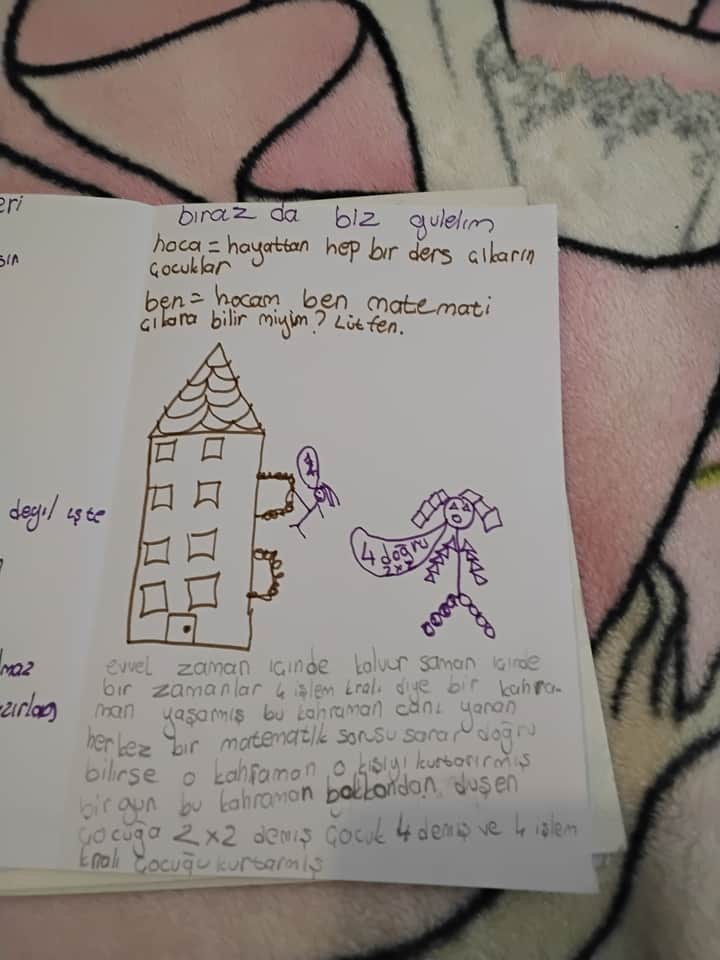 eri
sin
değil işte
maz
biraz da biz gülelim
hoca = hayattan hep bir ders çıkarın
çocuklar
ben = hocam ben matemati
çıkara bilir miyim? Lütfen.
4
4 doğru
2x2
evvel zaman içinde kalvur saman içinde
bir zamanlar 4 işlem kralı diye bir kahra-
man yaşarmış bu kahraman canı yanan
herkez bir matematik sorusu sorar doğru
bilirse o kahraman o kişiyi kurtarırmış
bir gün bu kahraman balkondan düşen
çocuğa 2x2 demiş çocuk 4 demiş ve 4 işlem
kralı çocuğu kurtarmış